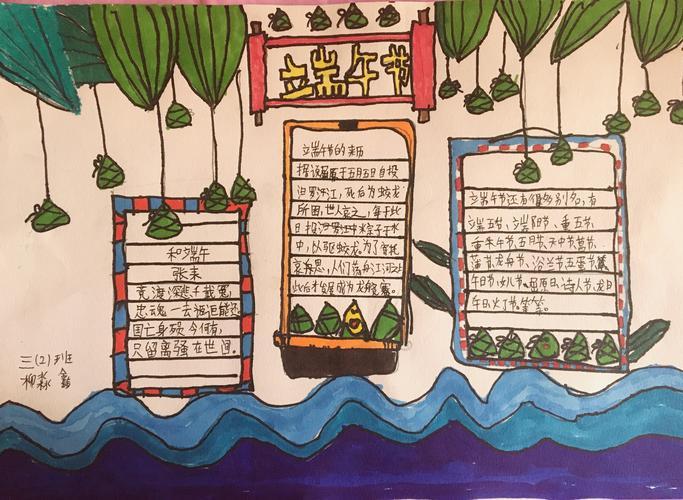 端午节
和端午
张耒
竞渡深悲千载冤,
忠魂一去讵能还
国亡身殒今何有,
只留离骚在世间。
端午节的来历
据说屈原于五月五日自投
汨罗江,死后为蛟龙
所困,世人哀之,每于此
日投
中,以驱蛟龙。为了寄托
哀思,人们荡舟江河之上
此后才发展成为龙舟竞赛。
端午节还有很多别名,有
端五节、端阳节、重五节、
重午节、五月节、天中节
菖蒲、龙舟节、浴兰节
午日节、女儿节、屈原日、诗人节、龙日
午日、灯节等等。
三(2)班
柳淼鑫